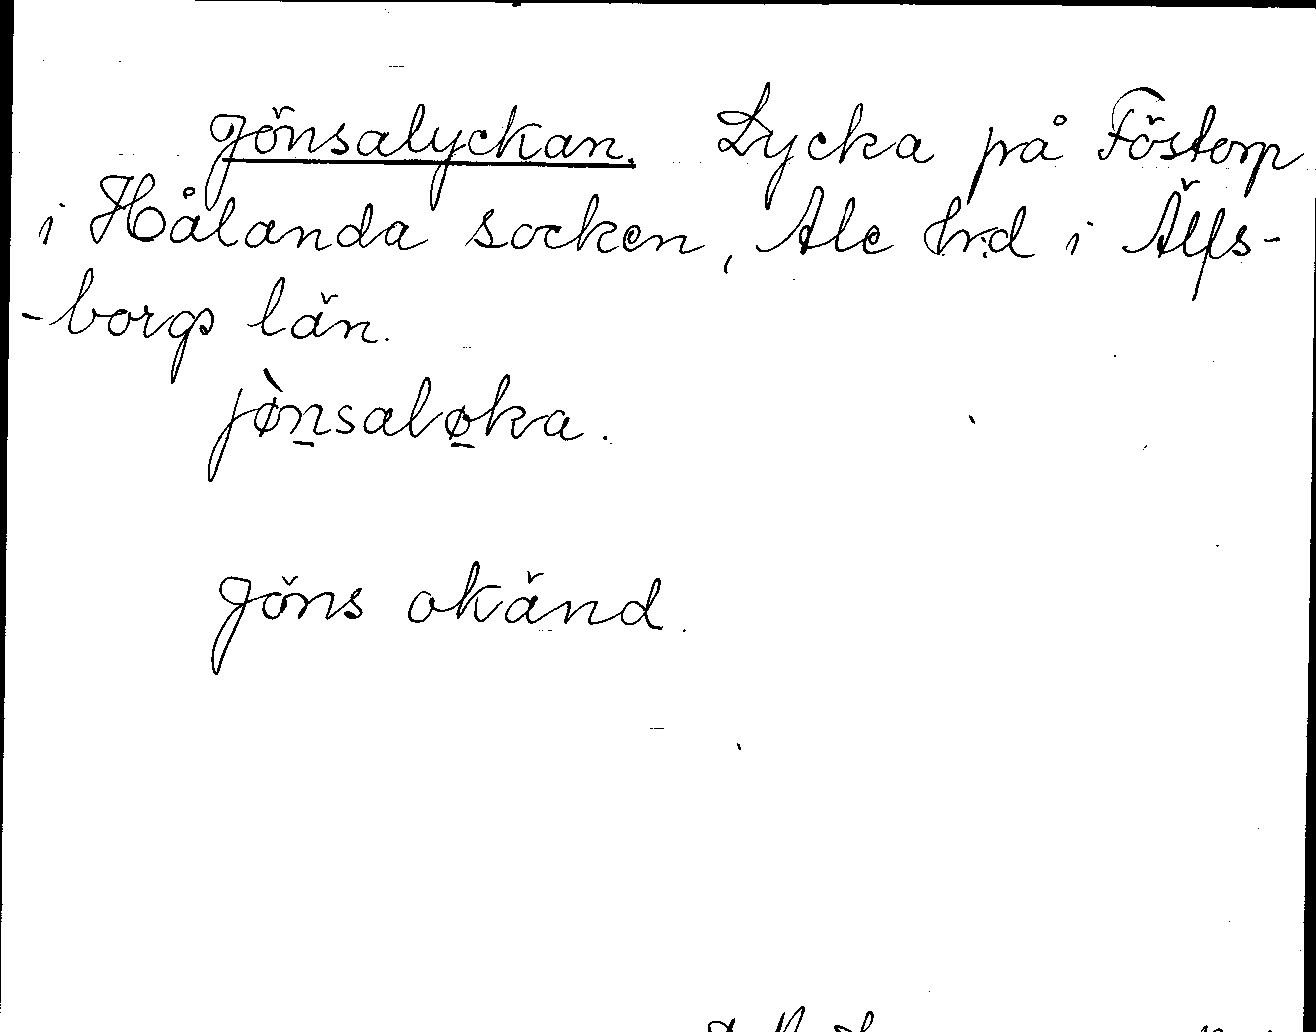 Jönsalyckan. Lycka på Föstorp
i Hålanda socken, Ale hrd i Älfs-
-borgs län.
jø̀n̲salø̲ka.
Jöns okänd.